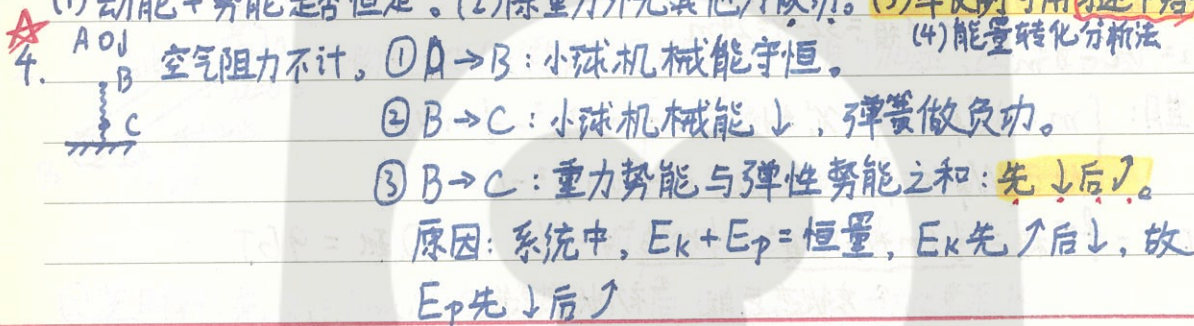 (1) 动能+势能是否恒定。(2)除重力外无其他力做功。(3)
(4)能量转化分析法
4. A B C 空气阻力不计。①A→B:小球机械能守恒。
②B→C:小球机械能↓,弹簧做负功。
③B→C:重力势能与弹性势能之和:先↓后↗。
原因:系统中,Eₖ+Eₚ=恒量,Eₖ先↗后↓,故
Eₚ先↓后↗